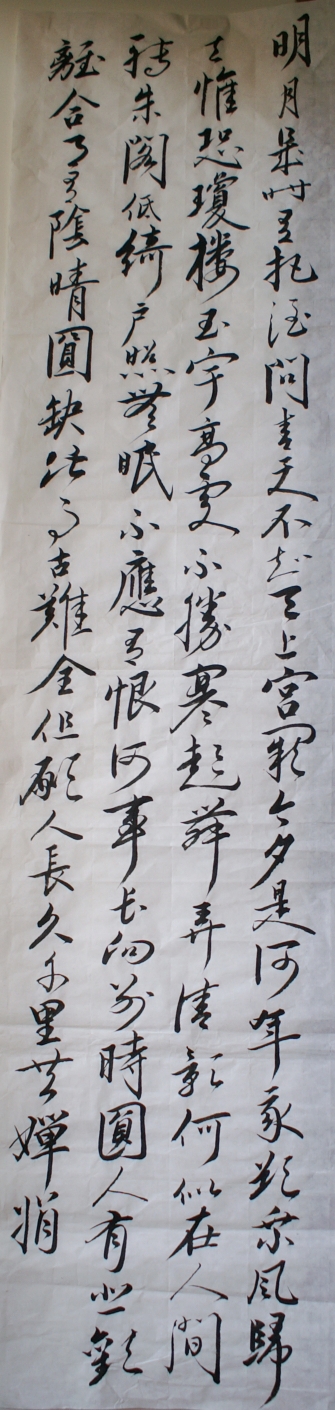 明月幾時有把酒問青天不知天上宮闕今夕是何年我欲乘風歸
去惟恐瓊樓玉宇高處不勝寒起舞弄清影何似在人間
轉朱閣低綺戶照無眠不應有恨何事長向別時圓人有悲歡
離合月有陰晴圓缺此事古難全但願人長久千里共嬋娟